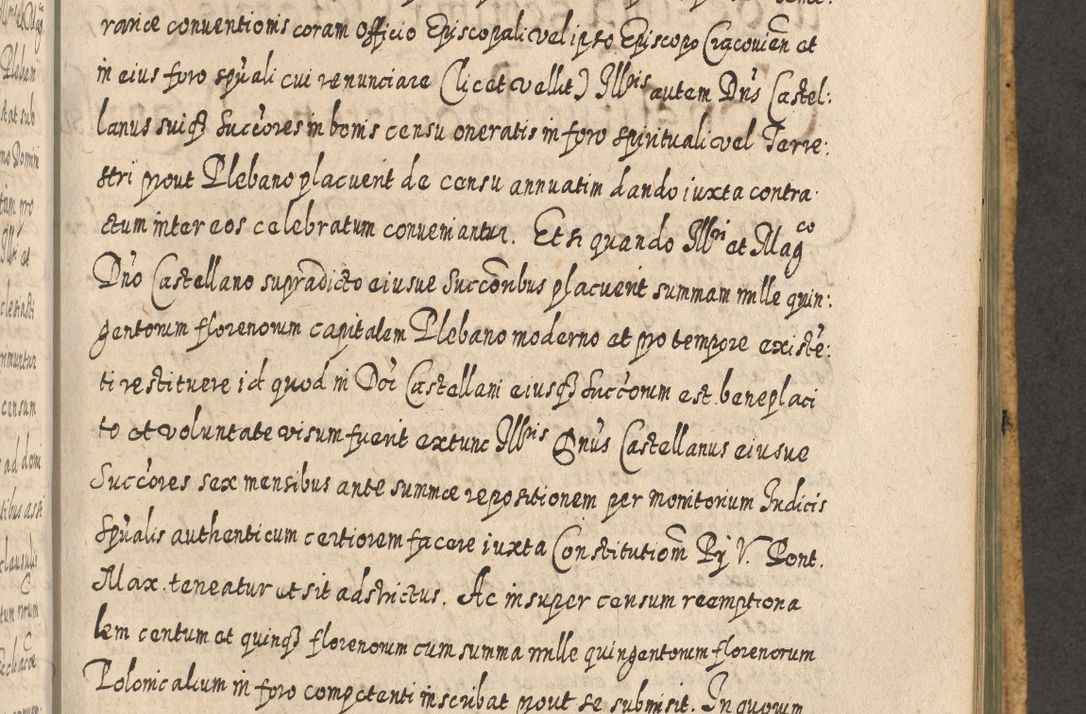 rance conventionis coram Officio Episcopali vel ipso Episcopo Cracovien̄ et
in eius foro spūali cui renunciare (licet vellet) Illʳⁱˢ autem Dn̄s Castel:
lanus suiq₃ Succ̄ores in bonis censu oneratis in foro spirituali vel Terre:
stri prout Plebano placuerit de censu annuatim dando iuxta contra
ctum inter eos celebratum conveniantur. Et si quando Illʳⁱ et Magᶜᵒ
Dn̄o Castellano supradicto eiusve Succōribus placuerit summam mille quin:
gentorum florenorum capitalem Plebano moderno et pro tempore existē:
ti restituere id quod in Dn̄i Castellani eiusq₃ Succ̄orum est beneplaci
to et voluntate visum fuerit extunc Illʳⁱˢ Dn̄us Castellanus eiusve
Succ̄ores sex mensibus ante summæ repositionem per monitorium Iudicis
Spūalis authenticum certiorem facere iuxta Constitutiōm Pij V. Pont.
Max. teneatur et sit adstrictus. Ac insuper censum reemptiona
lem centum et quinq₃ florenorum cum summa mille quingentorum florenorum
Polonicalium in foro competenti inscribat prout se submisit. In quorum